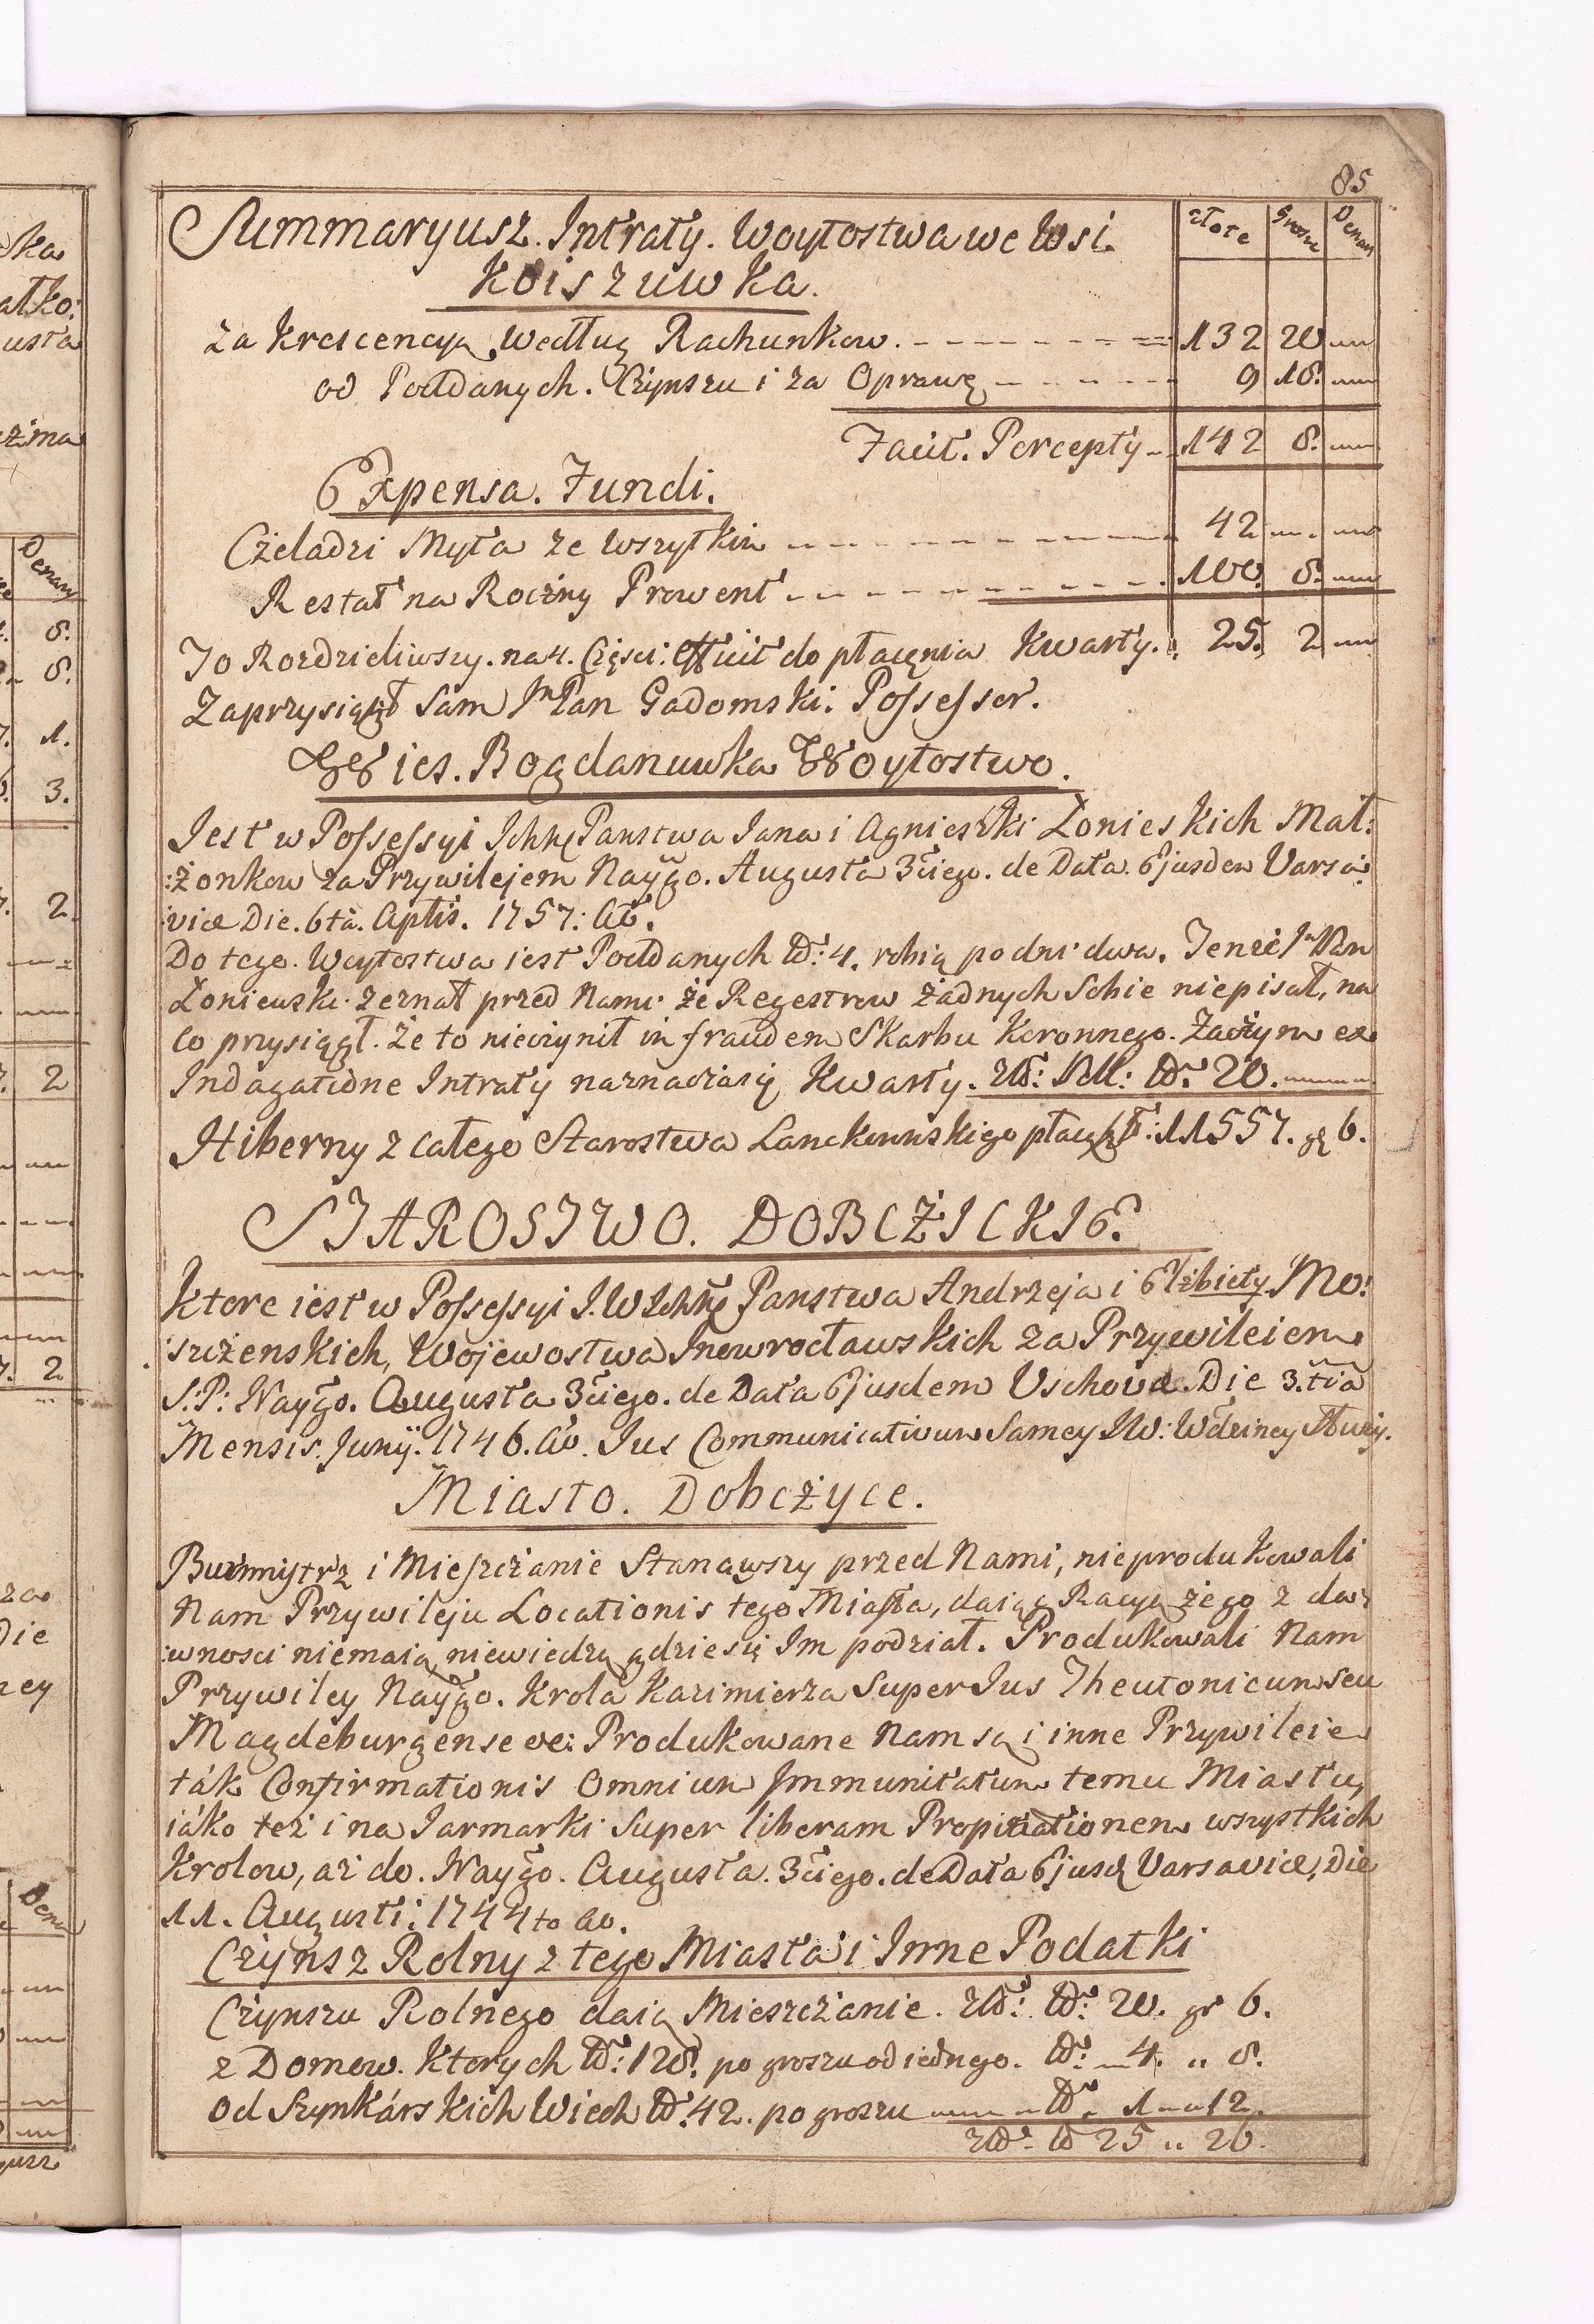 85
Summaryusz. Intraty. Woytostwa we Wsi
złote Grosze Denar
Koiszuwka.
za Krescencyą Według Rachunkow. 132 20
od Poddanych. Czynszu i za Oprawę 9 18.
Facit. Percepty 142 8.
Expensa. Fundi.
Czeladzi Myta ze wszytkim 42
Restat na Roczny Prowent 100. 8.
To Rozdzieliwszy. na 4. Częsci: Efficit do płacęnia Kwarty. 25. 2
Zaprzysiągł Sam Jm Pan Gadomski: Possessor.
Wies. Bogdanuwka Woytostwo.
Jest w Possessyi Ichm Panstwa Jana i Agnieszki Łonieskich Mał:
:żonkow za Przywilejem Nayygo. Augusta 3ciego. de Data Ejusdem Varsa:
:viæ Die. 6ta. Aplis. 1757: Ao.
Do tego. Woytostwa iest Poddanych No: 4. robią po dni dwa. Tenże Jm Pan
Łoniewski zeznał przed Nami że Regestrow żadnych Sobie niepisał, na
co przysiągł. że to nieczynił in fraudem Skarbu Koronnego. Zaczym ex
Indagatione Intraty naznaczasię Kwarty. No: 20.
Hiberny z całego Starostwa Lanckorunskigo płacą zł: 11557. gr 6.
STAROSTWO. DOBCZICKIE.
ktore iest w Possessyi J.W Ichm Panstwa Andrzeja i Elżbiety Mo:
:szczenskich, Wojewostwa Inowrocławskich za Przywileiem
S.P: Nayygo. Augusta 3ciego. de Data Ejusdem Vschovæ. Die 3.tia
Mensis. Junij. 1746. Ao. Jus Communicativum Samey JW: Wdziney
Miasto. Dobczyce.
Burmistrz i Mieszczanie Stanąwszy przed Nami, nieprodukowali
Nam Przywileju Locationis tego Miasta, daiąc Racyą że go z da:
:wnosci niemaią niewiedzą gdzie się Im podział. Produkowali Nam
Przywiley Nayygo. Krola Kazimierza Super Jus Theutonicum seu
Magdeburgense ve: Produkowane Nam są i inne Przywileie
ták Confirmationis Omnium Immunitatum temu Miastu,
iáko też i na Jarmarki Super liberam Propinationem wszystkich
Krolow, aż do. Nayygo. Augusta. 3ciego. de Data Ejusd Varsaviæ, Die
11. Augusti: 1744 to Ao.
Czynsz Rolny z tego Miasta i Inne Podatki
Czynszu Rolnego daią Mieszczanie. No: 20. gr 6.
z Domow. Ktorych No: 128. po groszu od iednego. No: 4. " 8.
Od Szynkárskich Wiech No: 42. po groszu No. 1 12.
No 25 " 26.